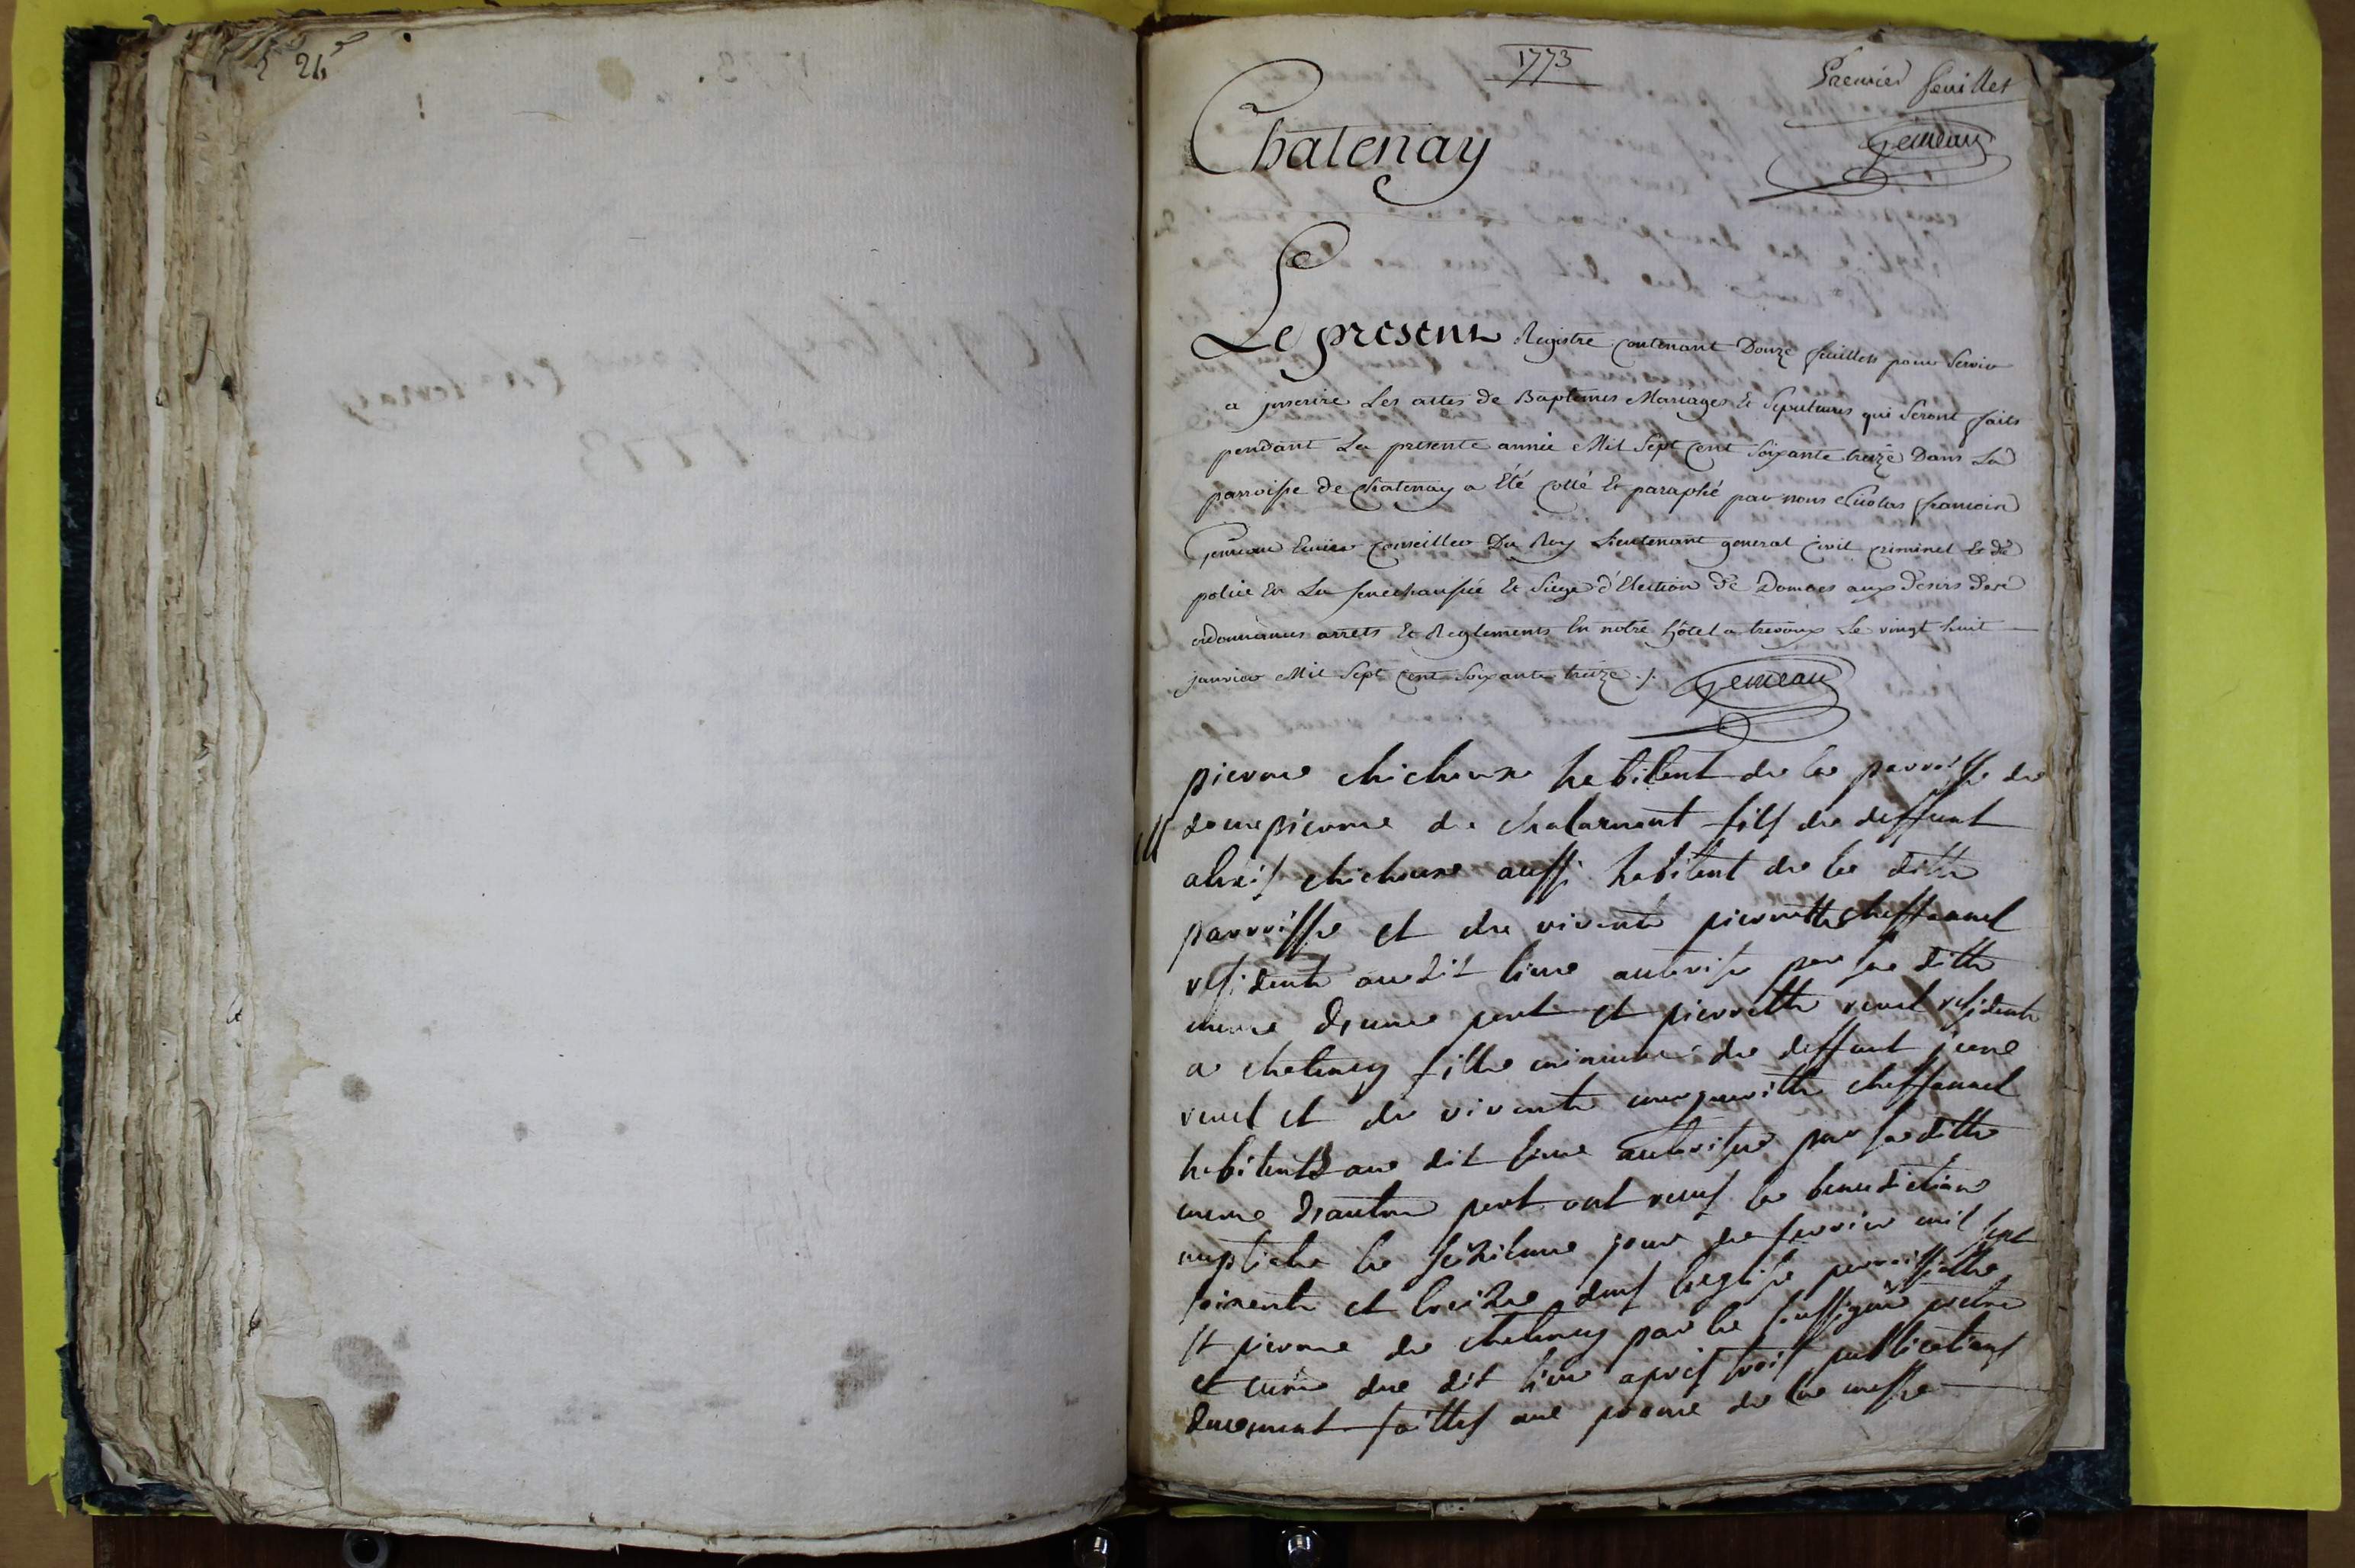 24
1773
Premier feuillet
Gemeau
Chatenay
Le present Registre contenant Douze feuillets pour servir
a jnscrire Les actes de Baptemes Mariages Et Sepultures qui seront faits
pendant La presente année Mil Sept Cent Soixante treize Dans La
parroisse De Chatenay a Eté Cotté Et paraphé par nous Nicolas françois
Gemeau Ecuier Conseiller Du Roy Lieutenant general Civil Criminel Et de
police En La senechaussée Et Siege d'Election De Dombes aux desirs des
ordonnances arrets Et Reglements En notre hôtel a trevoux Le vingt huit
janvier Mil Sept Cent Soixante treize ./. Gemeau
pierre chicheux habitent de la parroisse de
pierre de chalamont fils de deffunt
alexis chicheux aussi habitent de la ditte
parroisse et de vivente pierrette
residente au dit lieu autorisé par sa ditte
mere d'une part et pierrette residente
a chatenay fille mineure de deffunt
et de vivente margueritte
habitents au dit lieu autorisée par sa ditte
mere d'autre part ont la benediction
nuptiale le seizieme jour de fevrier mil sept
soixente et treize dens l'eglise parroissialle
st pierre de chatenay par le soussigné pretre
et curé du dit lieu apres trois publications
duement faittes au prone de la messe